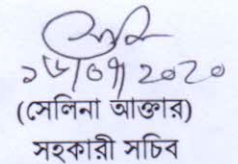 ১৬/০৭/২০২০
(সেলিনা আক্তার)
সহকারী সচিব